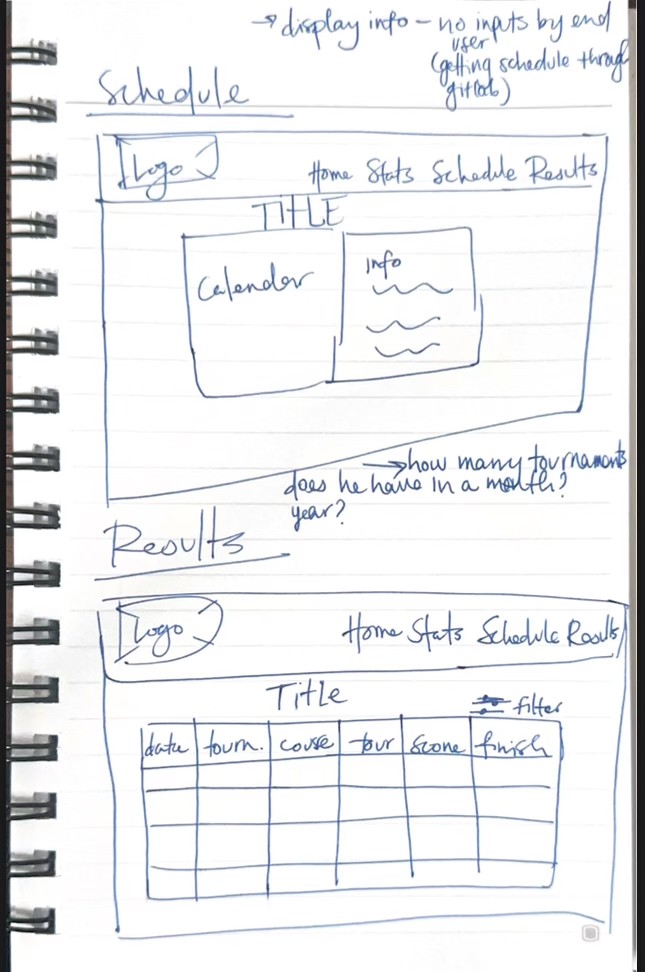 → display info – no inputs by end
user
(getting schedule through
gitlab)
Schedule
Logo
Home Stats Schedule Results
TITLE
Calendar
info
→ how many tournaments
does he have in a month?
year?
Results
Logo
Home Stats Schedule Results
Title
filter
date tourn. course tour score finish